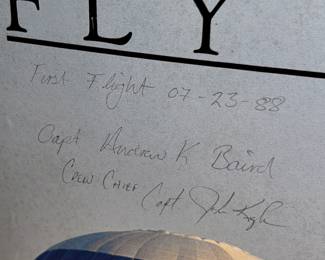 FLY
First Flight 07-23-88
Capt Andrew K Baird
Crew Chief
Capt John